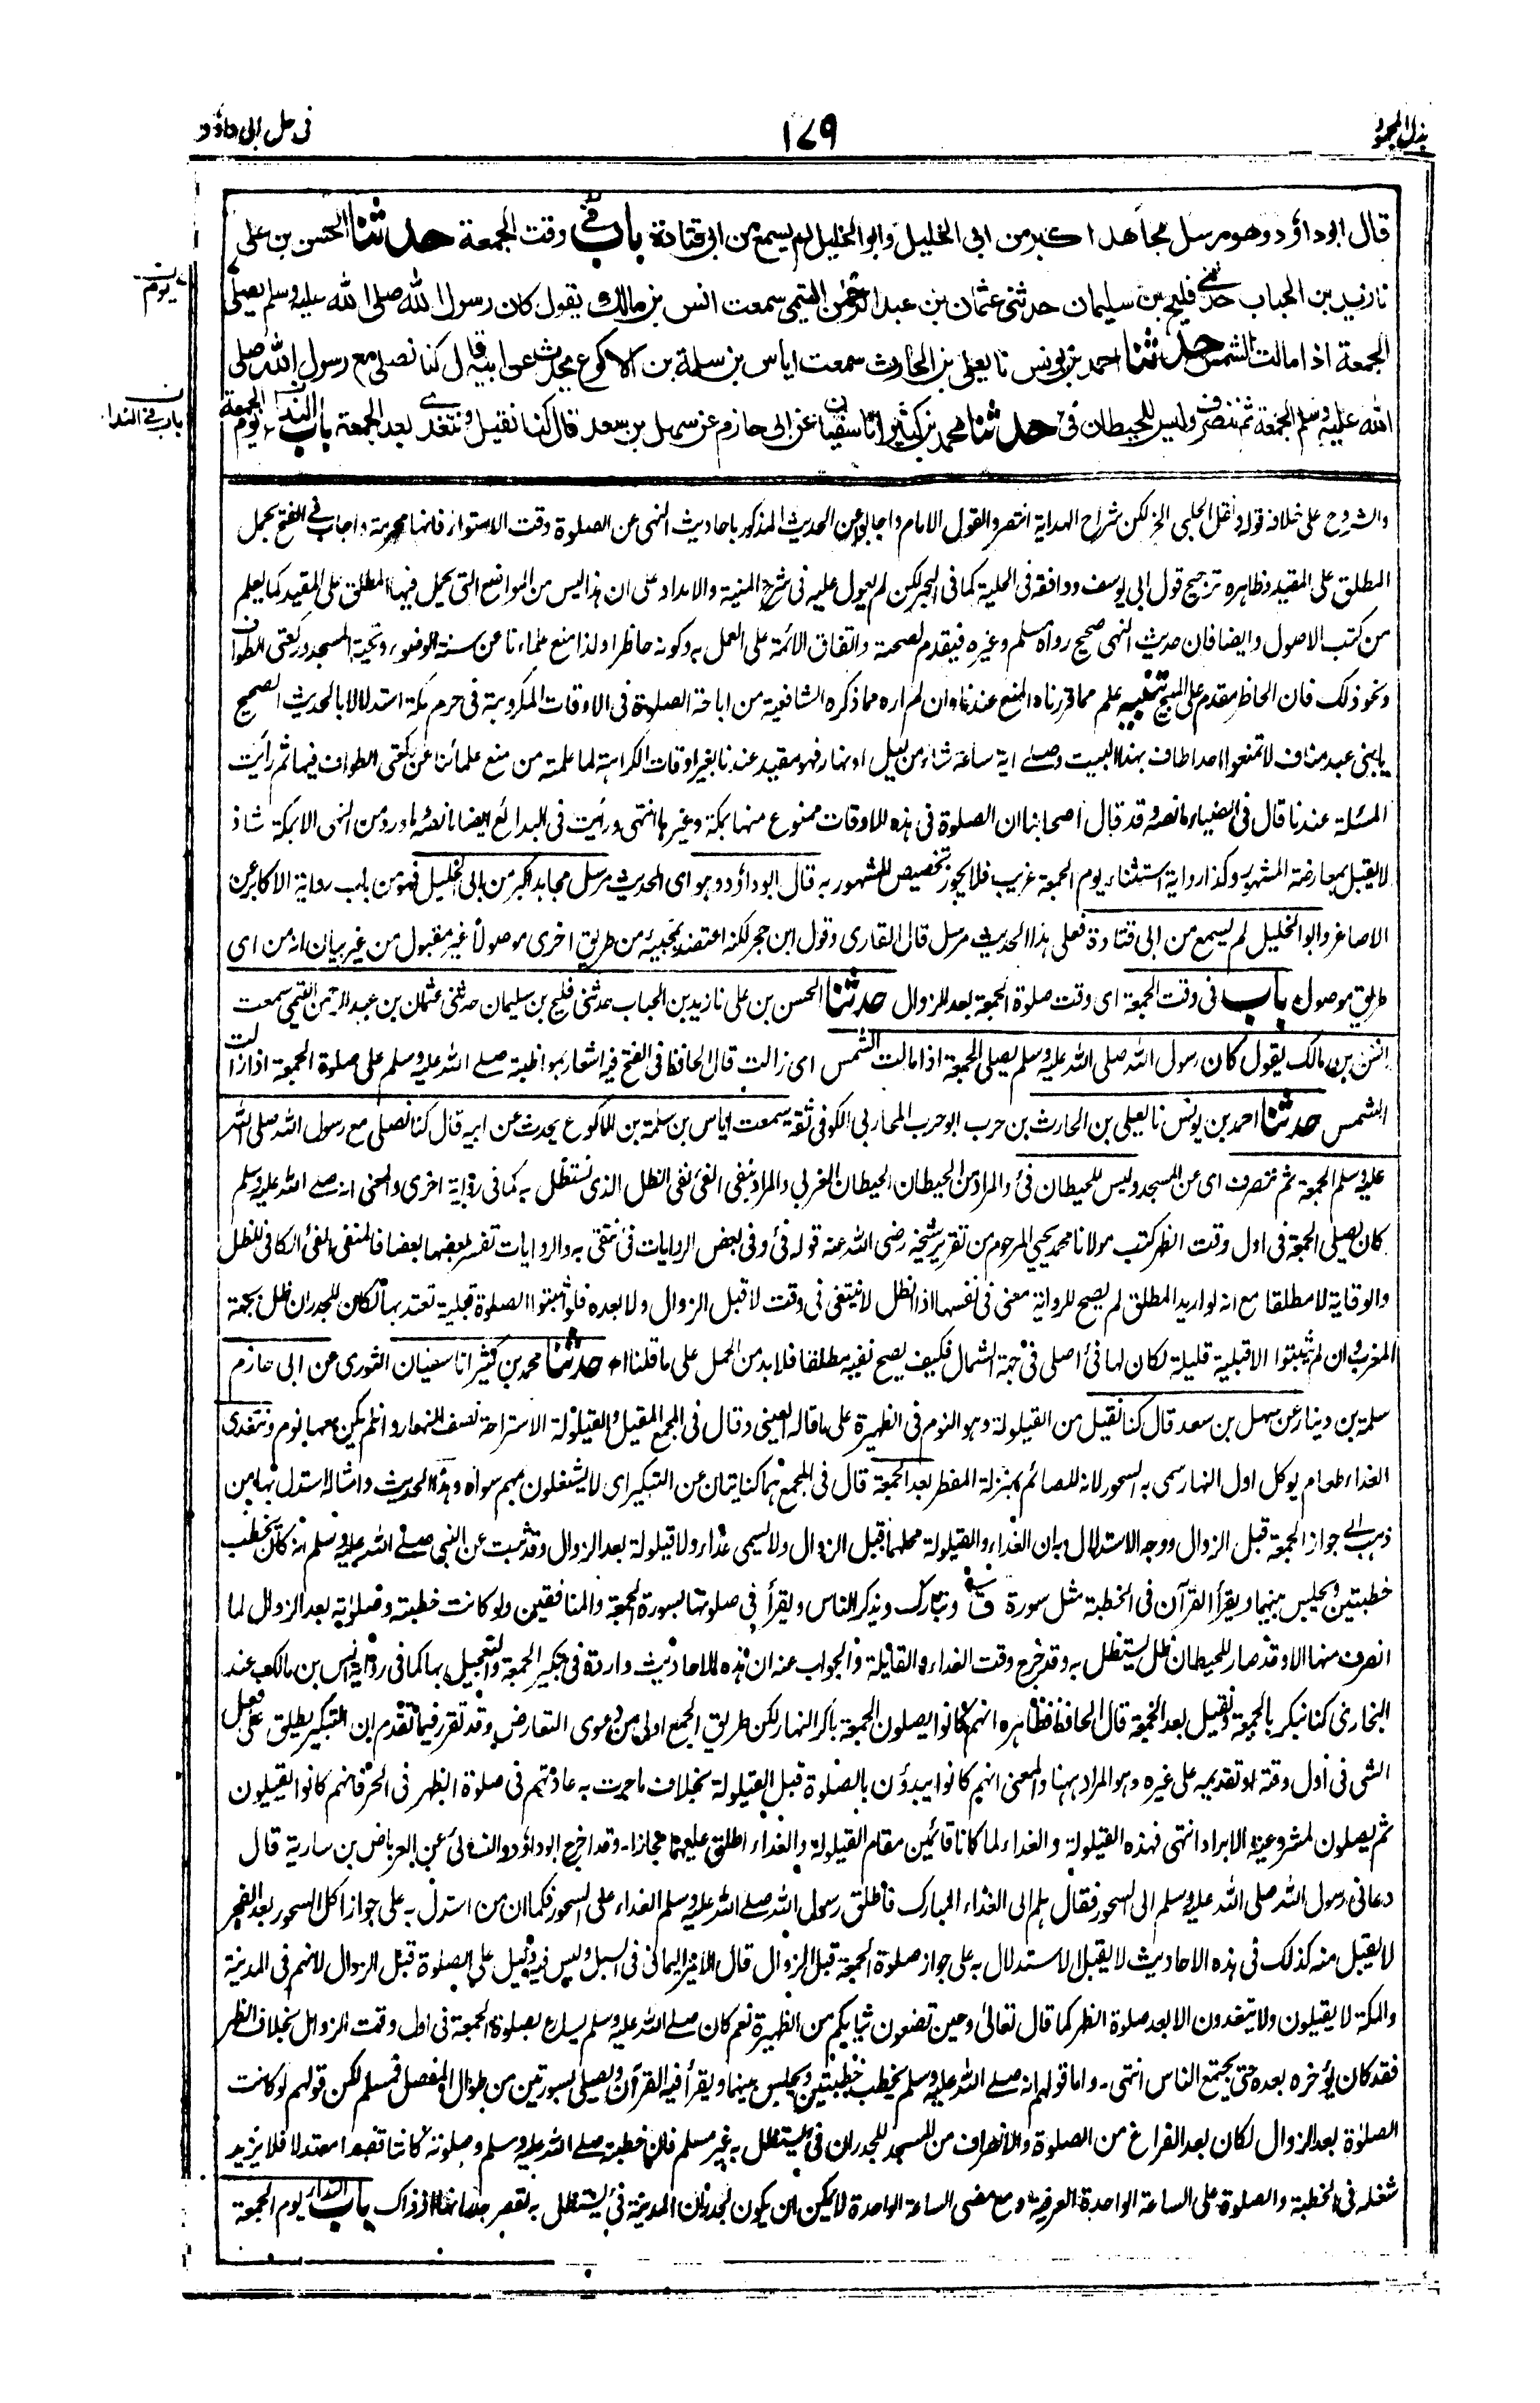 بذل المجهود
١٧٩
فى حل ابى داؤد
قال ابو داؤد وهو مرسل مجاهد اكبر من ابى الخليل وابو الخليل لم يسمع من ابى قتادة باب فى وقت الجمعة حدثنا الحسن بن على
نا زيد بن الحباب حدثنى فليح بن سليمان حدثنى عثمان بن عبد الرحمٰن التيمى سمعت انس بن مالك يقول كان رسول الله صلى الله عليه وسلم يصلى
الجمعة اذا مالت الشمس حدثنا احمد بن يونس نا يعلى بن الحارث سمعت اياس بن سلمة بن الاكوع يحدث عن ابيه قال كنا نصلى مع رسول الله صلى
الله عليه وسلم الجمعة ثم ننصرف وليس للحيطان فئ حدثنا محمد بن كثير انا سفيان عن ابى حازم عن سهل بن سعد قال كنا نقيل ونتغدى بعد الجمعة باب النداء يوم الجمعة
يوم
باب فى النداء
والشروح على خلافه قوله ونقل الحلبى الخ لكن شراح الهداية انتصروا لقول الامام واجابوا عن الحديث المذكور باحاديث النهى عن الصلوة وقت الاستواء فانها محرمة واجاب فى الفتح بحمل
المطلق على المقيد وظاهره ترجيح قول ابى يوسف ووافقه فى الحلية كما فى البحر لكن لم يعول عليه فى شرح المنية والامداد على ان هذا ليس من المواضع التى يحمل فيها المطلق على المقيد كما يعلم
من كتب الاصول وايضا فان حديث النهى صحيح رواه مسلم وغيره فيقدم لصحته واتفاق الائمة على العمل به وكونه حاظرا ولذا منع علماءنا عن سنة الوضوء وتحية المسجد وركعتى الطواف
ونحو ذلك فان الحاظر مقدم على المبيح تنبيه علم مما قررناه المنع عندنا وان لم اره مما ذكره الشافعية من اباحة الصلوة فى الاوقات المكروهة فى حرم مكة استدلالا بالحديث الصحيح
يا بنى عبد مناف لا تمنعوا احدا طاف بهذا البيت وصلے اية ساعة شاء من ليل او نهار فهو مقيد عندنا بغير اوقات الكراهة لما علمته من منع علمائنا عن ركعتى الطواف فيها ثم رأيت
المسئلة عندنا قال فى الضياء ما نصه وقد قال اصحابنا ان الصلوة فى هذه الاوقات ممنوع منها بمكة وغيرها انتهى ورأيت فى البدائع ايضا ما نصه ما ورد من النهى الا بمكة شاذ
لا يقبل بمعارضة المشهور وكذا رواية استثناء يوم الجمعة غريب فلا يجوز تخصيص المشهور به قال ابو داؤد وهو اى الحديث مرسل مجاهد اكبر من ابى الخليل فهو من باب رواية الاكابر عن
الاصاغر وابو الخليل لم يسمع من ابى قتادة فعلى هذا الحديث مرسل قال القارى وقول ابن حجر لكنه اعتضد بمجيئه من طريق اخرى موصولا غير مقبول من غير بيان انه من اى
طريق موصول باب فى وقت الجمعة اى وقت صلوة الجمعة بعد الزوال حدثنا الحسن بن على نا زيد بن الحباب حدثنى فليح بن سليمان حدثنى عثمان بن عبد الرحمن التيمى سمعت
انس بن مالك يقول كان رسول الله صلى الله عليه وسلم يصلى الجمعة اذا مالت الشمس اى زالت قال الحافظ فى الفتح فيه اشعار بمواظبته صلے الله عليه وسلم على صلوة الجمعة اذا زالت
الشمس حدثنا احمد بن يونس نا يعلى بن الحارث بن حرب ابو حرب المحاربى الكوفى ثقة سمعت اياس بن سلمة بن الاكوع يحدث عن ابيه قال كنا نصلى مع رسول الله صلى الله
عليه وسلم الجمعة ثم ننصرف اى عن المسجد وليس للحيطان فئ والمراد من الحيطان الحيطان الغربى والمراد بنفى الفئ نفى الظل الذى نستظل به كما فى رواية اخرى والمعنى انه صلے الله عليه وسلم
كان يصلى الجمعة فى اول وقت الظهر كتب مولانا محمد يحيى المرحوم من تقرير شيخه رضى الله عنه قوله فئ وفى بعض الروايات فئ نتقى به والروايات تفسر بعضها بعضا فالمنفى الفئ الكافى للظل
والوقاية لا مطلقا مع انه لو اريد المطلق لم يصح للرواية معنى فى نفسها اذ الظل لا ينتفى فى وقت لا قبل الزوال ولا بعده فلو اثبتوا الصلوة قبلية تعتد بها لكان للجدران ظل بجهة
المغرب وان لم يثبتوا الا قبلية قليلة لكان لها فئ اصلى فى جهة الشمال فكيف يصح نفيه مطلقا فلا بد من الحمل على ما قلنا اه حدثنا محمد بن كثير انا سفيان الثورى عن ابى حازم
سلمة بن دينار عن سهل بن سعد قال كنا نقيل من القيلولة وهو النوم فى الظهيرة على ما قاله العينى وقال فى المجمع المقيل والقيلولة الاستراحة نصف النهار وان لم يكن معها نوم ونتغدى
الغداء طعام يوكل اول النهار سمى به السحور لانه للصائم بمنزلة المفطر بعد الجمعة قال فى المجمع هما كنايتان عن التبكير اى لا يشغلون بمهم سواه وهذا الحديث وامثاله استدل بها من
ذهب الى جواز الجمعة قبل الزوال ووجه الاستدلال به ان الغداء والقيلولة محلهما قبل الزوال ولا يسمى غداء ولا قيلولة بعد الزوال وقد ثبت عن النبى صلے الله عليه وسلم انه كان يخطب
خطبتين ويجلس بينهما ويقرأ القرآن فى الخطبة مثل سورة ق وتبارك ويذكر الناس ويقرأ فى صلوتها بسورة الجمعة والمنافقين ولو كانت خطبته وصلوته بعد الزوال لما
انصرف منها الا وقد صار للحيطان ظل يستظل به وقد خرج وقت الغداء والقائلة والجواب عنه ان هذه الاحاديث واردة فى تبكير الجمعة والتعجيل بها كما فى رواية انس بن مالك عند
البخارى كنا نبكر بالجمعة ونقيل بعد الجمعة قال الحافظ فظاهره انهم كانوا يصلون الجمعة باكر النهار لكن طريق الجمع اولى من دعوى التعارض وقد تقرر فيما تقدم ان التبكير يطلق على فعل
الشى فى اول وقته او تقديمه على غيره وهو المراد ههنا والمعنى انهم كانوا يبدؤن بالصلوة قبل القيلولة بخلاف ما جرت به عادتهم فى صلوة الظهر فى الحر فانهم كانوا يقيلون
ثم يصلون لمشروعية الابراد انتهى فهذه القيلولة والغداء لما كانا قائمين مقام القيلولة والغداء اطلق عليهما مجازا۔ وقد اخرج ابو داؤد والنسائى عن العرباض بن سارية قال
دعانى رسول الله صلى الله عليه وسلم الى السحور فقال هلم الى الغداء المبارك فاطلق رسول الله صلے الله عليه وسلم الغداء على السحور فكما ان من استدل به على جواز اكل السحور بعد الفجر
لا يقبل منه كذلك فى هذه الاحاديث لا يقبل الاستدلال به على جواز صلوة الجمعة قبل الزوال قال الامير اليمانى فى السبل وليس فيه دليل على الصلوة قبل الزوال لانهم فى المدينة
والمكة لا يقيلون ولا يتغدون الا بعد صلوة الظهر كما قال تعالىٰ وحين تضعون ثيابكم من الظهيرة نعم كان صلے الله عليه وسلم يسارع بصلوة الجمعة فى اول وقت الزوال بخلاف الظهر
فقد كان يؤخره بعده حتى يجتمع الناس انتهى۔ واما قولهم انه صلے الله عليه وسلم يخطب خطبتين ويجلس بينهما ويقرأ فيه القرآن ويصلى بسورتين من طوال المفصل فمسلم لكن قولهم لو كانت
الصلوة بعد الزوال لكان بعد الفراغ من الصلوة والانصراف من المسجد للجدران فئ يستظل به غير مسلم فان خطبته صلے الله عليه وسلم وصلوته كانتا قصدا معتدلا فلا يزيد
شغله فى الخطبة والصلوة على الساعة الواحدة العرفية ومع مضى الساعة الواحدة لا يمكن ان يكون لجدران المدينة فئ يستظل به لقصر جدرانها اذ ذاك باب النداء يوم الجمعة